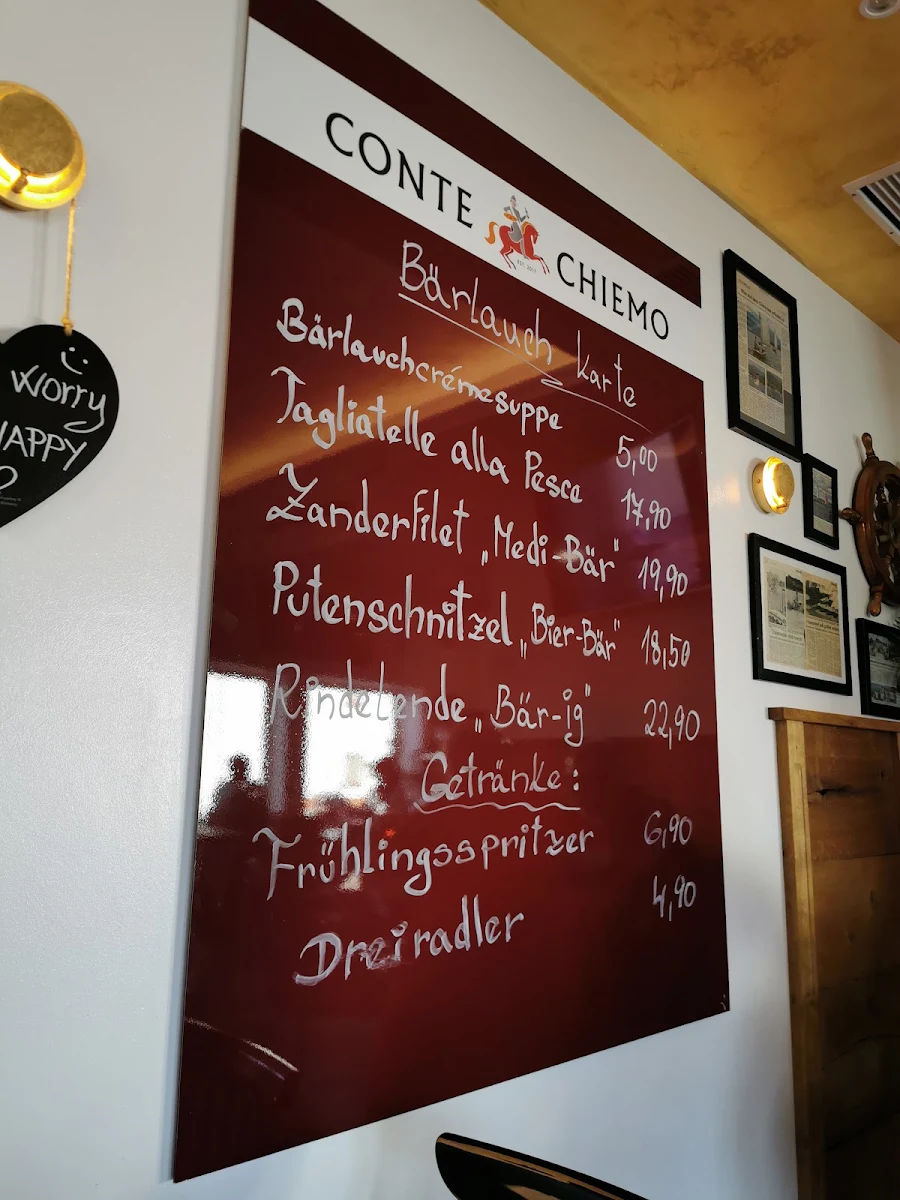 CONTE CHIEMO
EST. 2017
Bärlauch Karte
Bärlauchcrémesuppe 5,00
Tagliatelle alla Pesce 17,90
Zanderfilet „Medi-Bär" 19,90
Putenschnitzel „Bier-Bär" 18,50
Rindelende „Bär-ig" 22,90
Getränke:
Frühlingsspritzer 6,90
Dreiradler 4,90
Worry
HAPPY